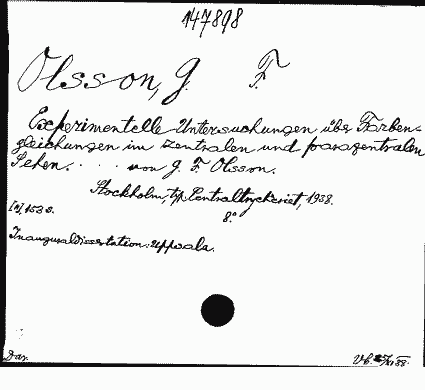 147898
Olsson, G. F.
Experimentelle Untersuchungen über Farben-
gleichungen im zentralen und parazentralen
Sehen. . . . von G. F. Olsson.
Stockholm, typ. Centraltryckeriet, 1938.
8°.
153 S.
Inauguraldissertation: Uppsala.
Dar.